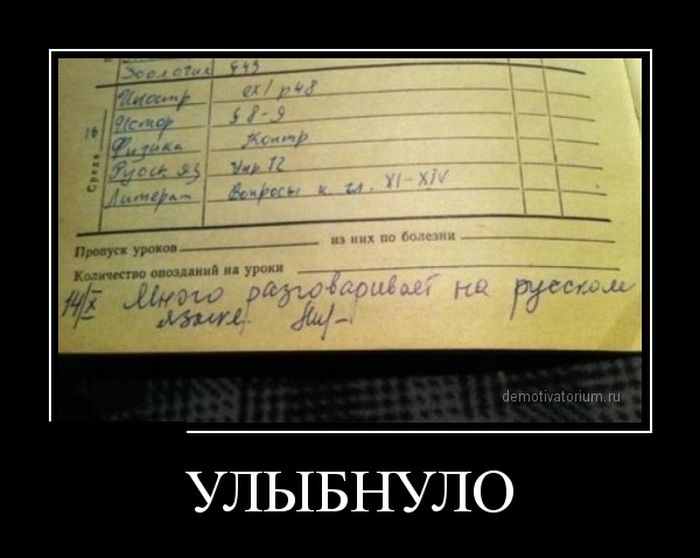 Зоология §43
Иностр ex1 p48
Истор § 8-9
16
Физика Контр
Русск яз Упр 12
Среда
Литерат Вопросы к гл. XI-XIV
Пропуск уроков из них по болезни
Количество опозданий на уроки
14/X Много разговаривает на русском
языке.
demotivatorium.ru
УЛЫБНУЛО